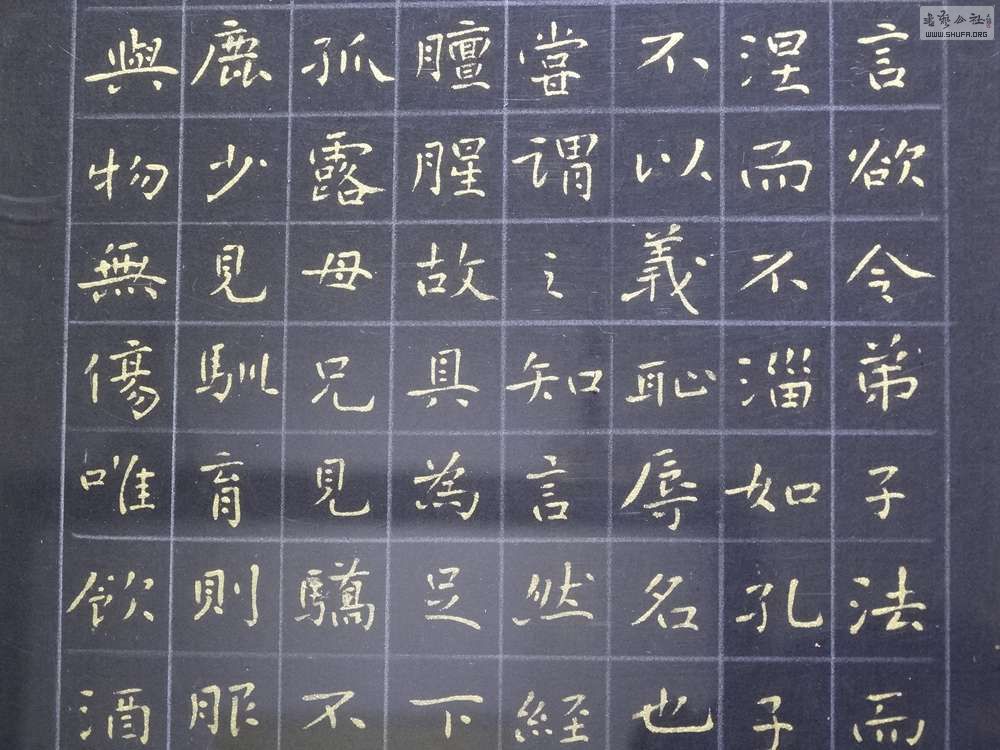 言欲令弟子法而
涅而不淄如孔子
不以義恥辱名也
嘗謂之知言然經
膻腥故具為足下
孤露母兄見驕不
鹿少見馴育則服
與物無傷唯飲酒
書藝公社
WWW.SHUFA.ORG